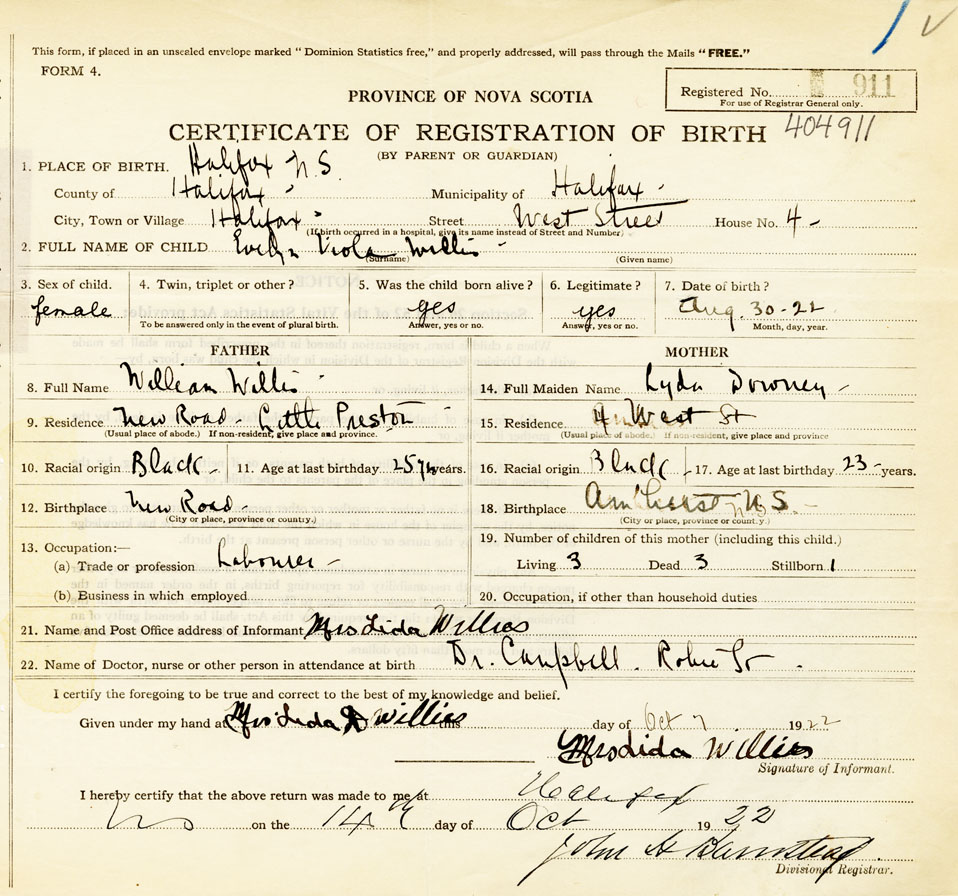 This form, if placed in an unsealed envelope marked "Dominion Statistics free," and properly addressed, will pass through the Mails "FREE."
FORM 4.
Registered No. 911
For use of Registrar General only.
PROVINCE OF NOVA SCOTIA
CERTIFICATE OF REGISTRATION OF BIRTH 404911
(BY PARENT OR GUARDIAN)
1. PLACE OF BIRTH. Halifax N.S.
County of Halifax Municipality of Halifax
City, Town or Village Halifax Street West Street House No. 4
(If birth occurred in a hospital, give its name instead of Street and Number)
2. FULL NAME OF CHILD Evelyn Viola Willis
(Surname) (Given name)
3. Sex of child. 4. Twin, triplet or other? 5. Was the child born alive? 6. Legitimate? 7. Date of birth?
female yes yes Aug. 30-22
To be answered only in the event of plural birth. Answer, yes or no. Answer, yes or no. Month, day, year.
FATHER MOTHER
8. Full Name William Willis 14. Full Maiden Name Lyda Downey
9. Residence New Road - Little Preston 15. Residence 4 West St
(Usual place of abode.) If non-resident, give place and province. (Usual place of abode.) If non-resident, give place and province
10. Racial origin Black 11. Age at last birthday 25 years. 16. Racial origin Black 17. Age at last birthday 23 years.
12. Birthplace New Road 18. Birthplace Amherst N.S.
(City or place, province or country.) (City or place, province or country.)
13. Occupation:— 19. Number of children of this mother (including this child.)
(a) Trade or profession Labourer Living 3 Dead 3 Stillborn 1
(b) Business in which employed 20. Occupation, if other than household duties
21. Name and Post Office address of Informant Mrs Lida Willies
22. Name of Doctor, nurse or other person in attendance at birth Dr. Campbell. Robie St.
I certify the foregoing to be true and correct to the best of my knowledge and belief.
Given under my hand at Mrs Lida Willies this day of Oct 7 1922
Mrs Lida Willies
Signature of Informant.
I hereby certify that the above return was made to me at Halifax
NS on the 14th day of Oct 1922
John H Barnstead
Divisional Registrar.